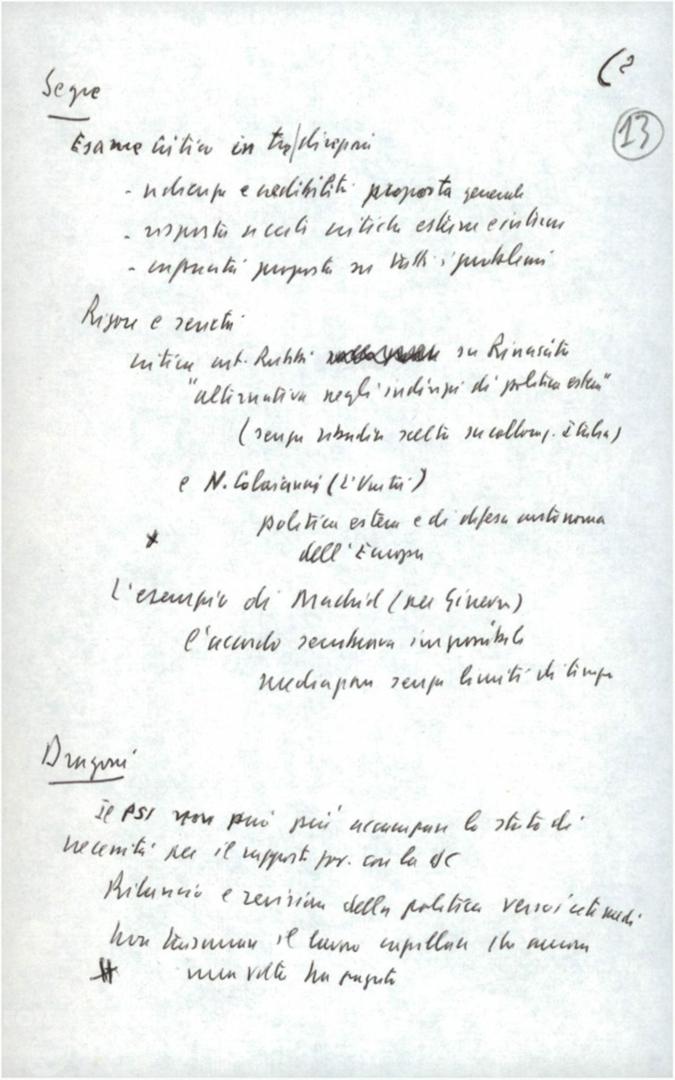 (2
13
Segre
Esame critico in tre direzioni
- e credibilità proposta generale
- risposta critiche esterne e interne
- proposta su tutti i problemi
Rigore e serietà
critica art. Rubbi su Rinascita
"alternativa negli indirizzi di politica estera"
(senza ribadire scelta Italia)
e N. Colajanni (L'Unità)
politica estera e di difesa autonoma
dell'Europa
L'esempio di Madrid (per Ginevra)
l'accordo sembrava impossibile
mediazione senza limiti di tempo
Dragoni
Il PSI non può più accampare lo stato di
necessità per il rapporto con la DC
Rilancio e revisione della politica verso i ceti medi
Non trascurare il lavoro capillare che ancora
una volta ha pagato